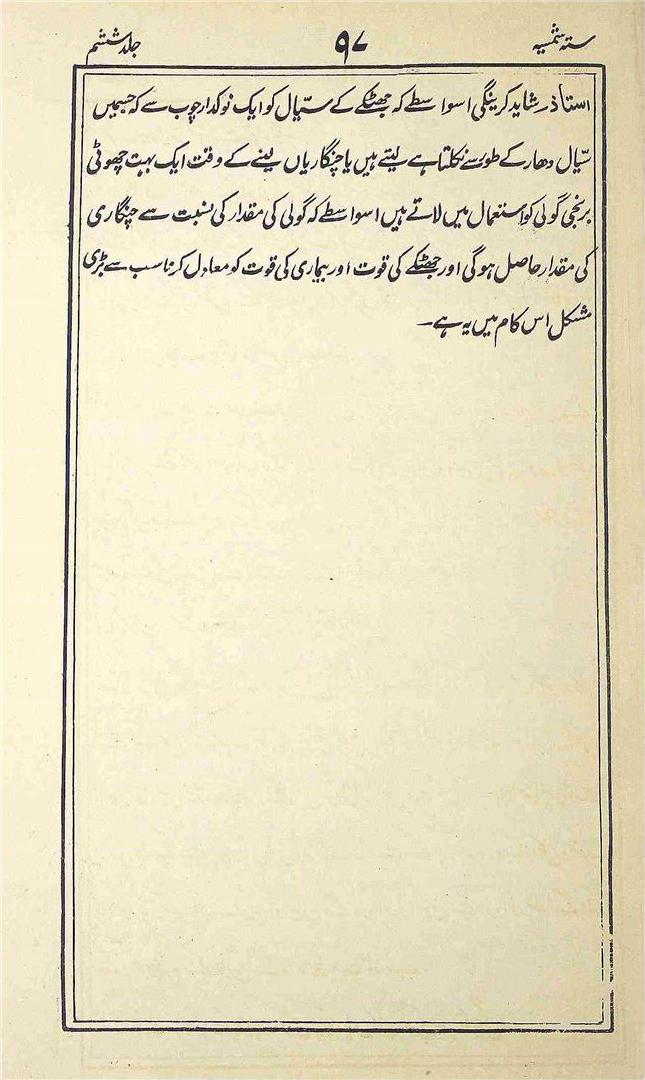 ستہ شمسیہ ۹۷ جلد ششم
استاذ رشاید کرینگی اسواسطے کہ جھٹکے کے سیّال کو ایک نوکدار چوب سے کہ جسمیں
سیّال دھار کے طور سے نکلتا ہے لیتے ہیں یا چنگاریاں لینے کے وقت ایک بہت چھوٹی
برنجی گولی کو استعمال میں لاتے ہیں اسواسطے کہ گولی کی مقدار کی نسبت سے چنگاری
کی مقدار حاصل ہوگی اور جھٹکے کی قوت اور بیماری کی قوت کو معادل کرنا سب سے بڑی
مشکل اس کام میں یہ ہے ۔